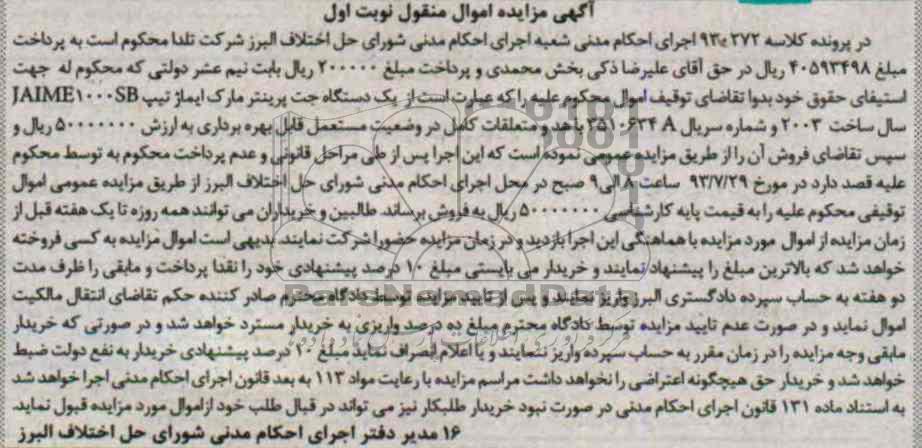 آگهی مزایده اموال منقول نوبت اول
در پرونده کلاسه ۲۷۲ ج۹۳ اجرای احکام مدنی شعبه اجرای احکام مدنی شورای حل اختلاف البرز شرکت تلدا محکوم است به پرداخت
مبلغ ۴۰۵۹۳۴۹۸ ریال در حق آقای علیرضا ذکی بخش محمدی و پرداخت مبلغ ۲۰۰۰۰۰۰ ریال بابت نیم عشر دولتی که محکوم له جهت
استیفای حقوق خود بدوا تقاضای توقیف اموال محکوم علیه را که عبارت است از یک دستگاه جت پرینتر مارک ایماژ تیپ JAIME۱۰۰۰SB
سال ساخت ۲۰۰۳ و شماره سریال ۲۵۱۰۶۳۴ A با هد و متعلقات کامل در وضعیت مستعمل قابل بهره برداری به ارزش ۵۰۰۰۰۰۰۰ ریال و
سپس تقاضای فروش آن را از طریق مزایده عمومی نموده است که این اجرا پس از طی مراحل قانونی و عدم پرداخت محکوم به توسط محکوم
علیه قصد دارد در مورخ ۹۳/۷/۲۹ ساعت ۸ الی ۹ صبح در محل اجرای احکام مدنی شورای حل اختلاف البرز از طریق مزایده عمومی اموال
توقیفی محکوم علیه را به قیمت پایه کارشناسی ۵۰۰۰۰۰۰۰ ریال به فروش برساند. طالبین و خریداران می توانند همه روزه تا یک هفته قبل از
زمان مزایده از اموال مورد مزایده با هماهنگی این اجرا بازدید و در زمان مزایده حضورا شرکت نمایند. بدیهی است اموال مزایده به کسی فروخته
خواهد شد که بالاترین مبلغ را پیشنهاد نمایند و خریدار می بایستی مبلغ ۱۰ درصد پیشنهادی خود را نقدا پرداخت و مابقی را ظرف مدت
دو هفته به حساب سپرده دادگستری البرز واریز نمایند و پس از تایید مزایده توسط دادگاه محترم صادر کننده حکم تقاضای انتقال مالکیت
اموال نماید و در صورت عدم تایید مزایده توسط دادگاه محترم مبلغ ده درصد واریزی به خریدار مسترد خواهد شد و در صورتی که خریدار
مابقی وجه مزایده را در زمان مقرر به حساب سپرده واریز ننمایند و یا اعلام انصراف نماید مبلغ ۱۰ درصد پیشنهادی خریدار به نفع دولت ضبط
خواهد شد و خریدار حق هیچگونه اعتراضی را نخواهد داشت مراسم مزایده با رعایت مواد ۱۱۳ به بعد قانون اجرای احکام مدنی اجرا خواهد شد
به استناد ماده ۱۳۱ قانون اجرای احکام مدنی در صورت نبود خریدار طلبکار نیز می تواند در قبال طلب خود از اموال مورد مزایده قبول نماید.
۱۶ مدیر دفتر اجرای احکام مدنی شورای حل اختلاف البرز